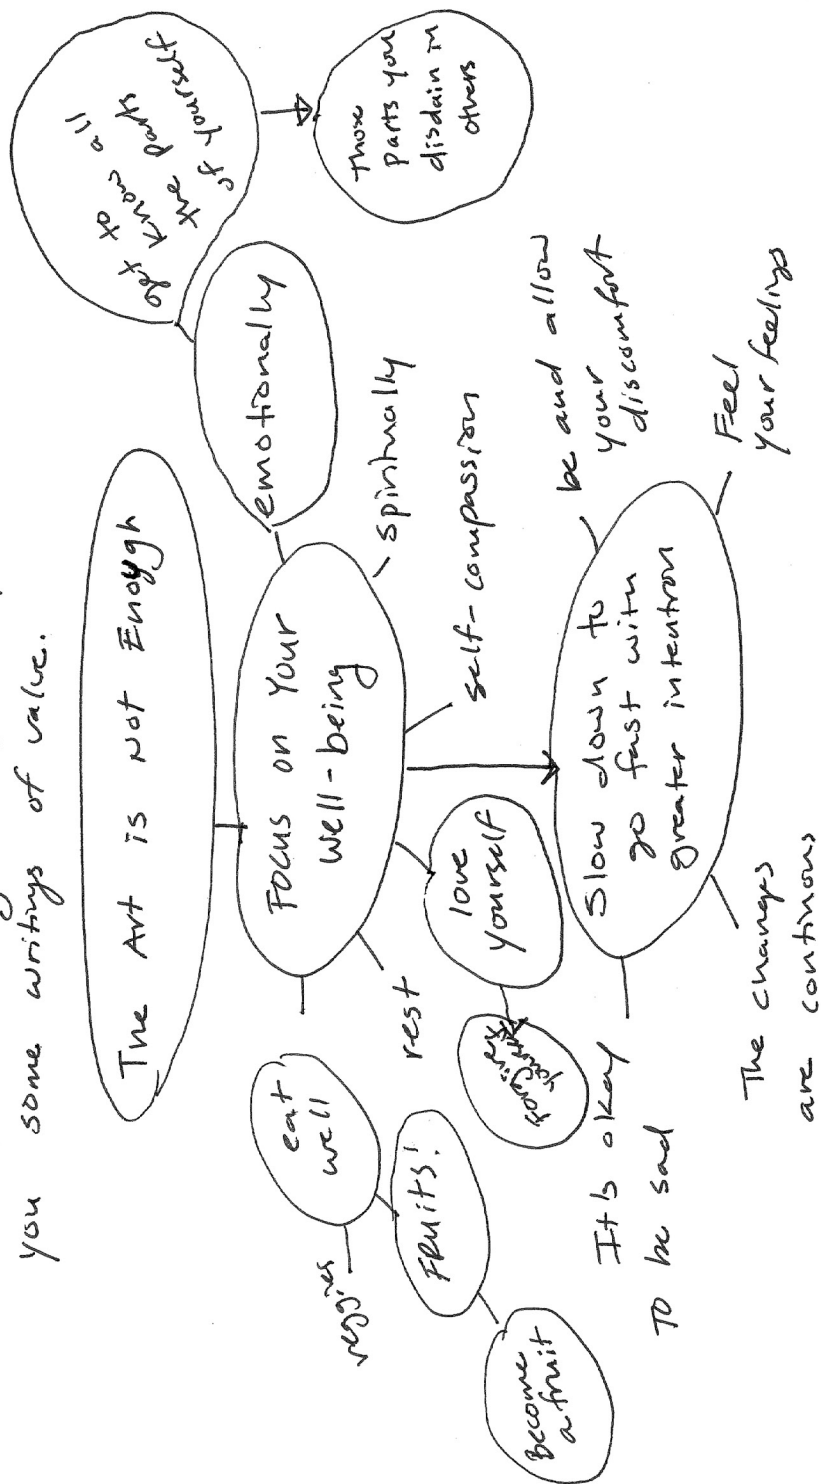 you some writings of value.
The Art is Not Enough
Focus on Your
Well-being
emotionally
get to
know all
the parts
of yourself
Those
parts you
disdain in
others
spiritually
self-compassion
love
yourself
forgive
rest
eat
well
veggies
FRuits!
Become
a fruit
Slow down to
go fast with
greater intention
be and allow
your
discomfort
Feel
your feelings
It's okay
To be sad
The changes
are continous